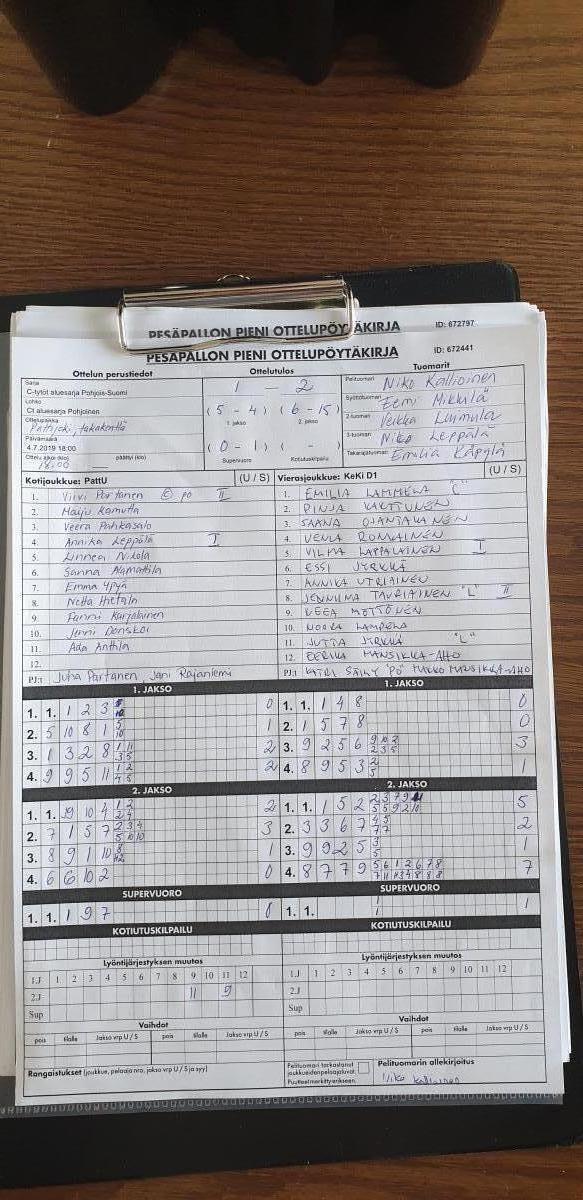 PESÄPALLON PIENI OTTELUPÖYTÄKIRJA ID: 672797
PESÄPALLON PIENI OTTELUPÖYTÄKIRJA ID: 672441
Ottelun perustiedot Ottelutulos Tuomarit
Sarja
C-tytöt aluesarja Pohjois-Suomi
Lohko
CI aluesarja Pohjoinen
Ottelupaikka
Patrjoki, takakenttä
Päivämäärä
4.7.2019 18:00
Ottelu alkoi (klo) päättyi (klo)
18:00
1 - 2
(5 - 4) (6 - 15)
1. jakso 2. jakso
(0 - 1) ( -
Supervuoro Kotiutuskilpailu
Pelituomari Niko Kallioinen
Syöttötuomari Eemi Mikkulä
2-tuomari Veikka Luimula
3-tuomari Niko Leppälä
Takarajatuomari Emilia Käpylä
Kotijoukkue: PattU (U / S) Vierasjoukkue: KeKi D1 (U / S)
1. Viivi Partanen © po II
2. Maiju Kamutta
3. Veera Pahkasalo
4. Annika Leppälä I
5. Linnea Nikola
6. Sanna Alamattila
7. Emma Ypyä
8. Netta Hietala
9. Fanni Karjalainen
10. Jenni Donskoi
11. Ada Anthla
12.
PJ:t Juha Partanen, Jani Rajaniemi
1. EMILIA LAMMELA "C"
2. PINJA KARTTUNEN
3. SAANA OJANTAKANEN
4. VENLA ROMAINEN
5. VILMA LAPPALAINEN I
6. ESSI JYRKKÄ
7. ANNIKA UTRIAINEN
8. JENNIINA TAURIAINEN "L" II
9. VEEA MÖTTÖNEN
10. NOORA LAMPELA
11. JUTTA JYRKKÄ "L"
12. EERIKA MANSIKKA-AHO
PJ:t KATRI SÄILY "PO" MARKO MANSIKKA-AHO
1. JAKSO 1. JAKSO
1. 1. 1 2 3 0 1. 1. 1 4 8 0
2. 5 10 8 1 5 10 1 2. 1 5 7 8 0
3. 1 3 2 8 2 3. 9 2 5 6 3
4. 9 9 5 11 2 4. 8 9 5 3 2 5 1
2. JAKSO 2. JAKSO
1. 1. 9 10 4 2 1. 1. 1 5 2 5
2. 7 1 5 7 3 2. 3 3 6 7 2
3. 8 9 1 10 1 3. 9 9 2 5 3 5 1
4. 6 6 10 2 0 4. 8 7 7 9 7
SUPERVUORO SUPERVUORO
1. 1. 1 9 7 0 1. 1. 1 1 1
KOTIUTUSKILPAILU KOTIUTUSKILPAILU
Lyöntijärjestyksen muutos Lyöntijärjestyksen muutos
1.J 1 2 3 4 5 6 7 8 9 10 11 12 1.J 1 2 3 4 5 6 7 8 9 10 11 12
2.J 11 9 2.J
Sup Sup
Vaihdot Vaihdot
pois tilalle Jakso vrp U / S pois tilalle Jakso vrp U / S pois tilalle Jakso vrp U / S pois tilalle Jakso vrp U / S
Rangaistukset (joukkue, pelaaja nro, jakso vrp U / S ja syy)
Pelituomari tarkastanut
joukkueidenpelaajaluvat.
Puutteet merkitty erikseen.
Pelituomarin allekirjoitus
Niko Kallioinen